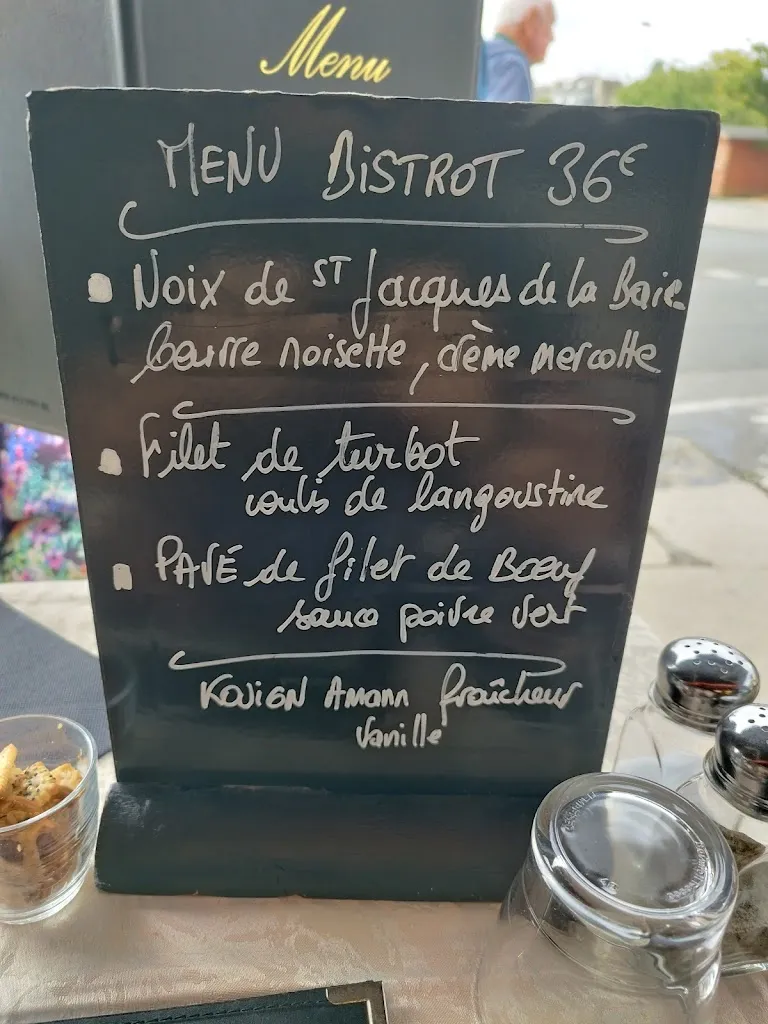 Menu
MENU BISTROT 36€
Noix de ST Jacques de la Baie
beurre noisette, crème mercotte
Filet de turbot
coulis de langoustine
PAVÉ de filet de Bœuf
sauce poivre vert
KOUIGN Amann fraîcheur
Vanille